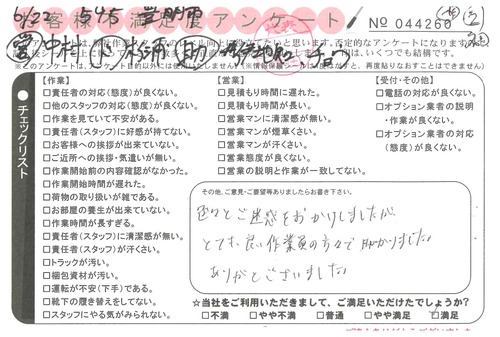 6/22
お客様満足度アンケート
No 044260
※このアンケートは、アンケート目的以外には使用いたしません。
チェックリスト
【作業】
□責任者の対応（態度）が良くない。
□他のスタッフの対応（態度）が良くない。
□作業を見ていて不安がある。
□責任者（スタッフ）に好感が持てない。
□お客様への挨拶が出来ていない。
□ご近所への挨拶・気遣いが無い。
□作業開始前の内容確認がなかった。
□作業開始時間が遅れた。
□荷物の取り扱いが雑である。
□お部屋の養生が出来ていない。
□作業時間が長すぎる。
□責任者（スタッフ）に清潔感が無い。
□責任者（スタッフ）が汗くさい。
□トラックが汚い。
□梱包資材が汚い。
□運転が不安（下手）である。
□靴下の履き替えをしてない。
□スタッフにやる気がみられない。
【営業】
□見積もり時間に遅れた。
□見積もり時間が長い。
□営業マンに清潔感が無い。
□営業マンが煙草くさい。
□営業マンが汗くさい。
□営業態度が良くない。
□営業の説明と作業が一致してない。
【受付・その他】
□電話の対応が良くない。
□オプション業者の説明・作業が良くない。
□オプション業者の対応（態度）が良くない。
その他、ご意見・ご要望等ありましたらお書き下さい。
色々とご迷惑をおかけしましたが
とても良い作業員の方々で助かりました
ありがとうございました
☆当社をご利用いただきまして、ご満足いただけたでしょうか？
□不満 □やや不満 □普通 □やや満足 □満足